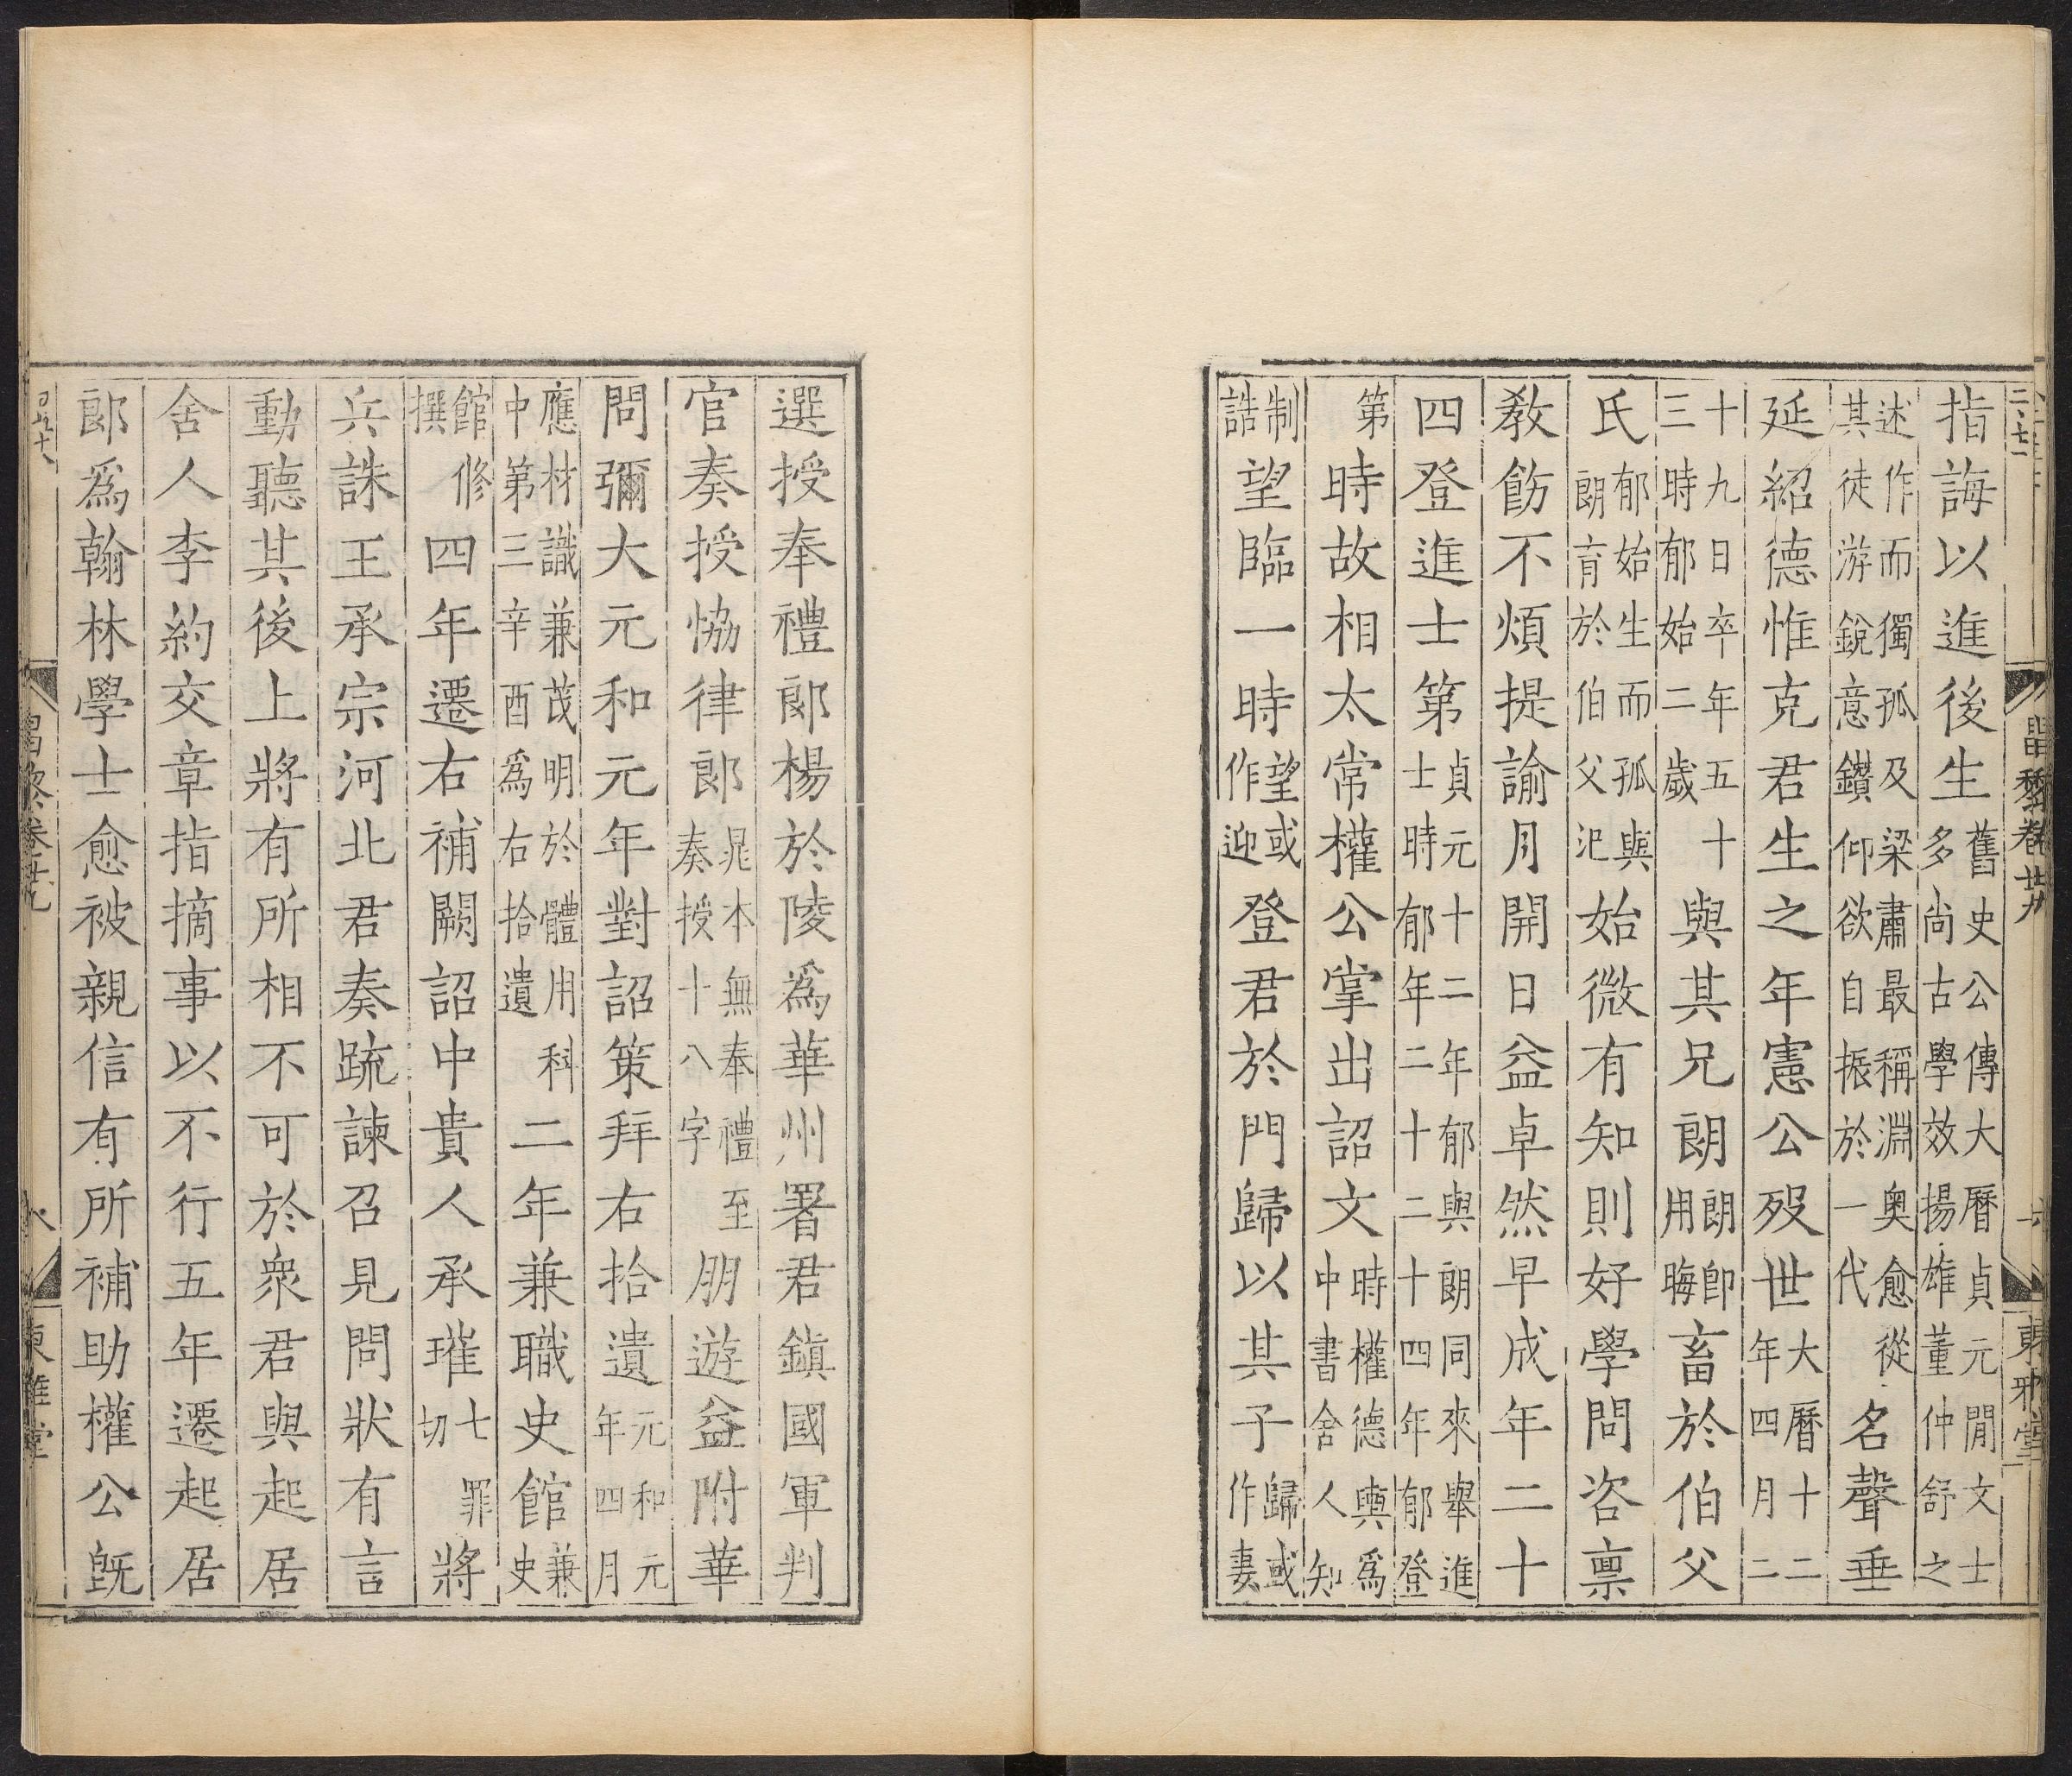 昌黎卷廿九 六 東雅堂
指誨以進後生舊史公傳大曆貞元間文士多尚古學效揚雄董仲舒之
述作而獨孤及梁肅最稱淵奧愈從其徒游銳意鑽仰欲自振於一代名聲垂
延紹德惟克君生之年憲公歿世大曆十二年四月二
十九日卒年五十三時郁始二歲與其兄朗朗即用晦畜於伯父
氏郁始生而孤與朗育於伯父汜始微有知則好學問咨禀
教飭不煩提諭月開日益卓然早成年二十
四登進士第貞元十二年郁與朗同來舉進士時郁年二十二十四年郁登
第時故相太常權公掌出詔文時權德輿爲中書舍人知
制誥望臨一時望或作迎登君於門歸以其子歸或作妻
選授奉禮郎楊於陵爲華州署君鎭國軍判
官奏授恊律郎晁本無奉禮至奏授十八字朋遊益附華
問彌大元和元年對詔策拜右拾遺元和元年四月
應材識兼茂明於體用科中第三辛酉爲右拾遺二年兼職史館兼史
館修撰四年遷右補闕詔中貴人承璀七罪切將
兵誅王承宗河北君奏疏諫召見問狀有言
動聽其後上將有所相不可於衆君與起居
舍人李約交章指摘事以不行五年遷起居
郎爲翰林學士愈被親信有所補助權公旣
昌黎卷廿九 東雅堂